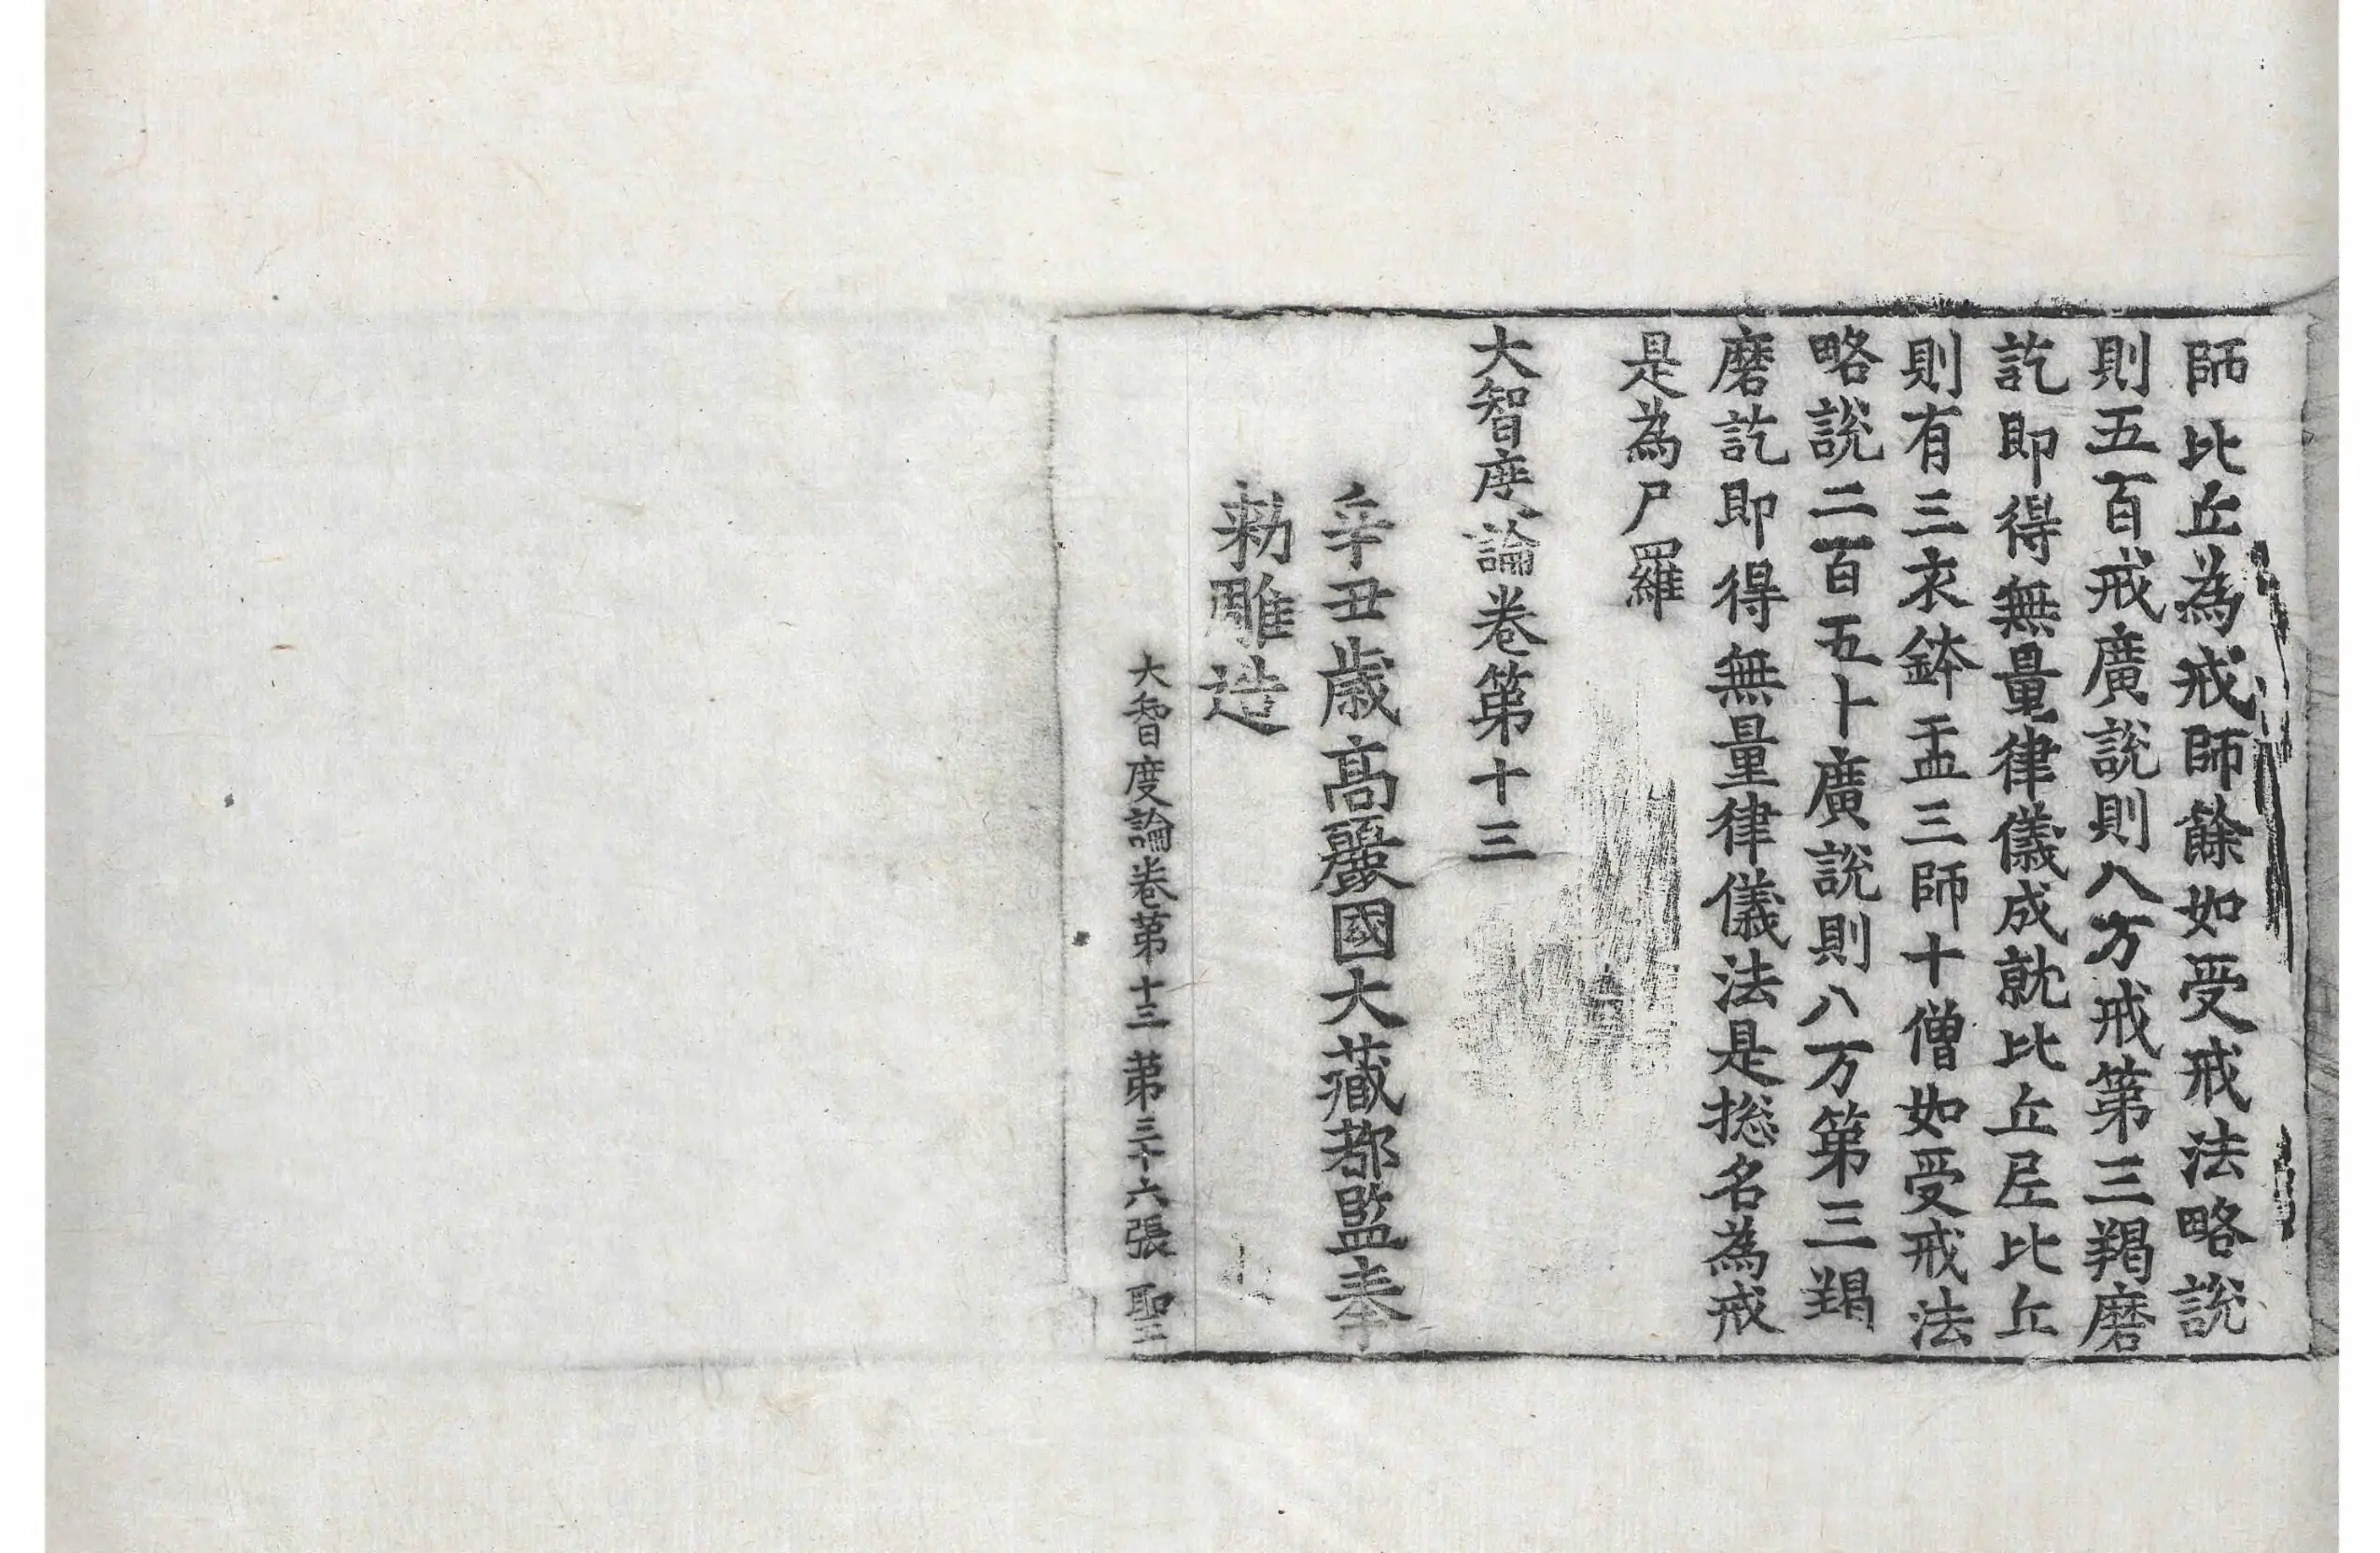 師比丘為戒師餘如受戒法略說
則五百戒廣說則八万戒第三羯磨
訖即得無量律儀成就比丘𡰱比丘
則有三衣鉢盂三師十僧如受戒法
略說二百五十廣說則八万第三羯
磨訖即得無量律儀法是摠名為戒
是為尸羅
大智度論卷第十三
辛丑歲高麗國大藏都監奉
勑雕造
大智度論卷第十三 第三十六張 聖